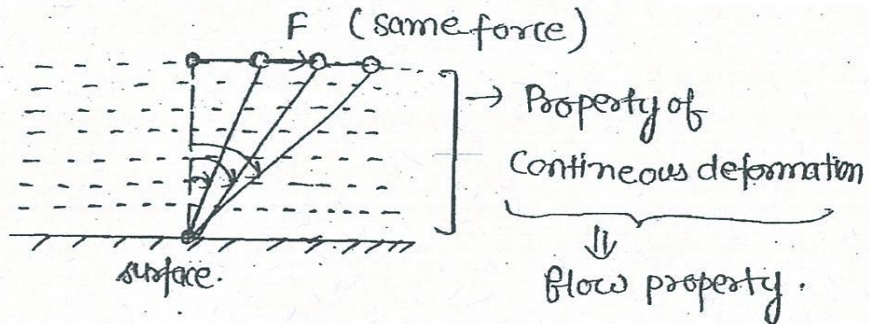 F (same force)
→ Property of
Contineous deformation
⇓
flow property.
surface.